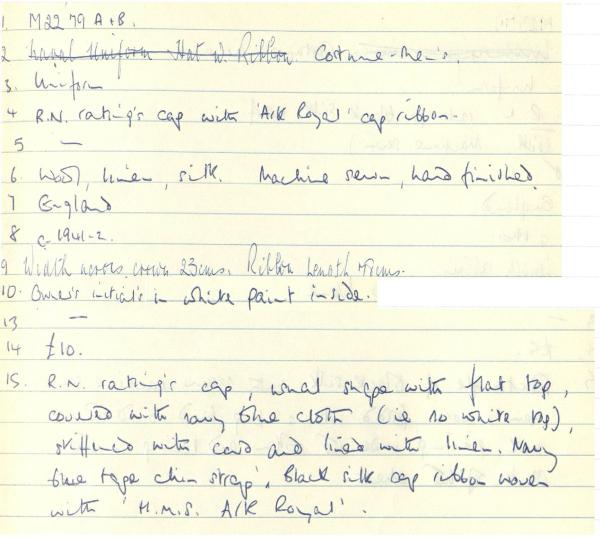 1. M2279 A+B.
2 Naval Uniform Hat w. Ribbon. Costume - Men's.
3. Uniform
4 R.N. rating's cap with 'Ark Royal' cap ribbon.
5 —
6. Wool, linen, silk. Machine sewn, hand finished.
7 England
8 c. 1941-2.
9 Width across crown 23cms. Ribbon length cms.
10. Owner's initials in white paint inside.
13 —
14 £10.
15. R.N. rating's cap, usual shape with flat top,
covered with navy blue cloth (ie no white top),
stiffened with card and lined with linen. Navy
blue tape chin strap. Black silk cap ribbon woven
with 'H.M.S. Ark Royal'.